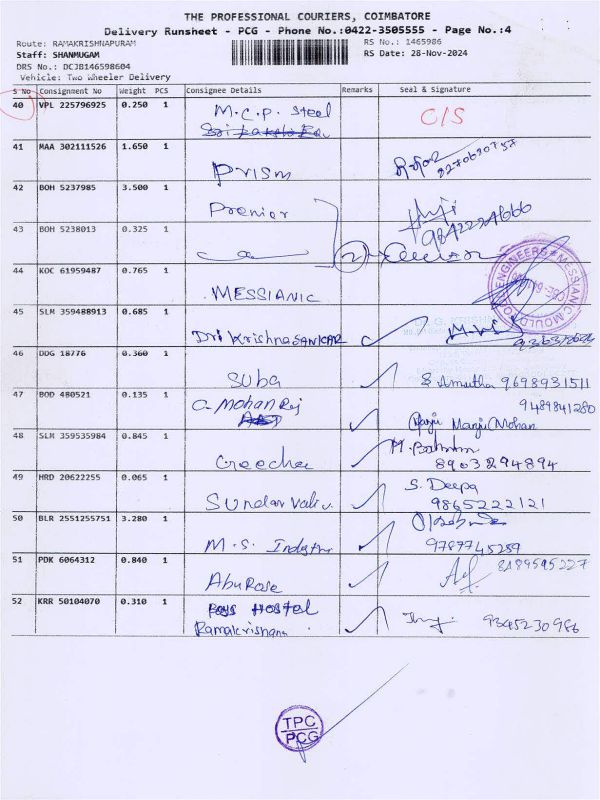 THE PROFESSIONAL COURIERS, COIMBATORE
Delivery Runsheet - PCG - Phone No.:0422-3505555 - Page No.:4
Route: RAMAKRISHNAPURAM RS No.: 1465986
Staff: SHANMUGAM RS Date: 28-Nov-2024
DRS No.: DCJB146598604
Vehicle: Two Wheeler Delivery
S No Consignment No Weight PCS Consignee Details Remarks Seal & Signature
40 VPL 225796925 0.250 1 M.C.P. Steel C/S
41 MAA 302111526 1.650 1 Prism
42 BOH 5237985 3.500 1 Premier
43 BOH 5238013 0.325 1 2
44 KOC 61959487 0.765 1 MESSIANIC
ENGINEERS MESSIANIC MOULD
45 SLM 359488913 0.685 1 Dri KrishnaSANKAR
46 DDG 18776 0.360 1 Suba S Amutha 9698931511
47 BOD 480521 0.135 1 C. Mohan Raj 9489841280
Manju Manju Mohan
48 SLM 359535984 0.845 1 Creecha 8903294894
49 HRD 20622255 0.065 1 Sundar S. Deepa
9865222121
50 BLR 2551255751 3.280 1 M.S. 9787745289
51 PDK 6064312 0.840 1 AbuRose 8189595227
52 KRR 50104070 0.310 1 Boys Hostel
Ramakrishana 9345230986
TPC
PCG